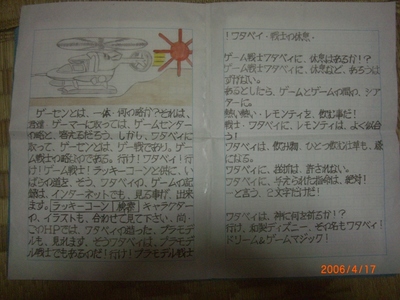 ゲーセンとは、一体、何の略か？それは、
普通、ゲーマーに取っては、ゲームセンター
の略と、答えるだろう。しかし、ワタベイに
取って、ゲーセンとは、ゲー戦であり。ゲー
ム戦士の略なのである。行け！ワタベイ！行
け！ゲーム戦士！ラッキーコーンと共に、い
ばらの道を。そう、ワタベイの、ゲームの記
録は、インターネットでも、見る事が、出来
ます。「ラッキーコーン」「検索」キャラクター
の、イラストも、合わせて見て下さい。同
このHPでは、ワタベイの造った、プラモデ
ルも、見れます。そうワタベイは、プラモデ
ル戦士でもあるのだ！行け！プラモデル戦士
！ワタベイ・戦士の休息・
ゲーム戦士ワタベイに、休息はあるか！？
ゲーム戦士ワタベイに、休息など、あろうは
ずがない。
あるとしたら、ゲームとゲームの間の、シア
ターに。
熱い熱い・レモンティを、飲む事だ！
戦士・ワタベイに、レモンティは、よく似合
う！
ワタベイは、飲み物、ひとつ飲む仕草も、優
になる。
ワタベイに、は、許されない。
ワタベイに、与えられた指命は、絶対！
と言う、ニ文字だけだ！
ワタベイは、神に何を祈るか！？
行け！東製ディズニー、その名もワタベイ！
ドリーム＆ゲームマジック！
2006/4/17